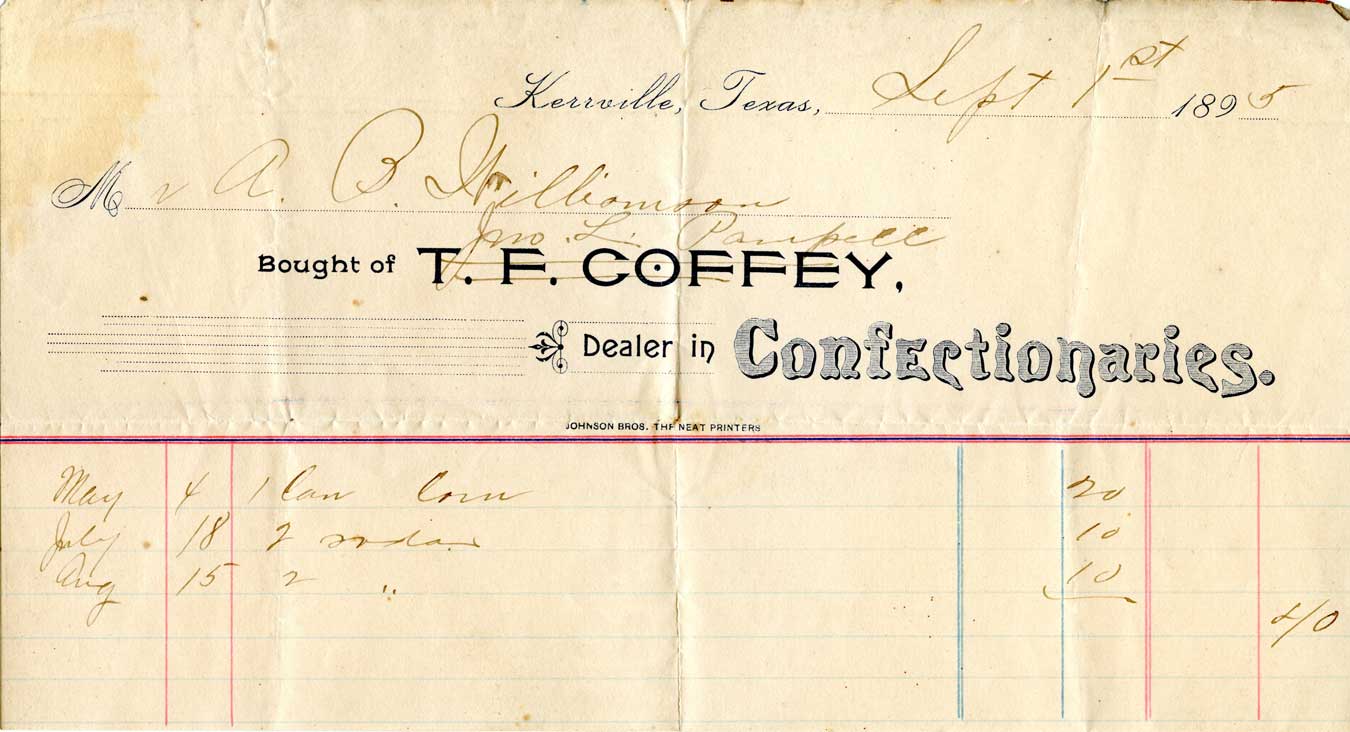 Kerrville, Texas, Sept 1st 1895
Mr A. B. Williamson
Jno. L. Pampell
Bought of T. F. COFFEY,
Dealer in Confectionaries.
JOHNSON BROS. THE NEAT PRINTERS
May 4 1 Can Corn 20
July 18 2 sodas 10
Aug 15 2 " 10
40